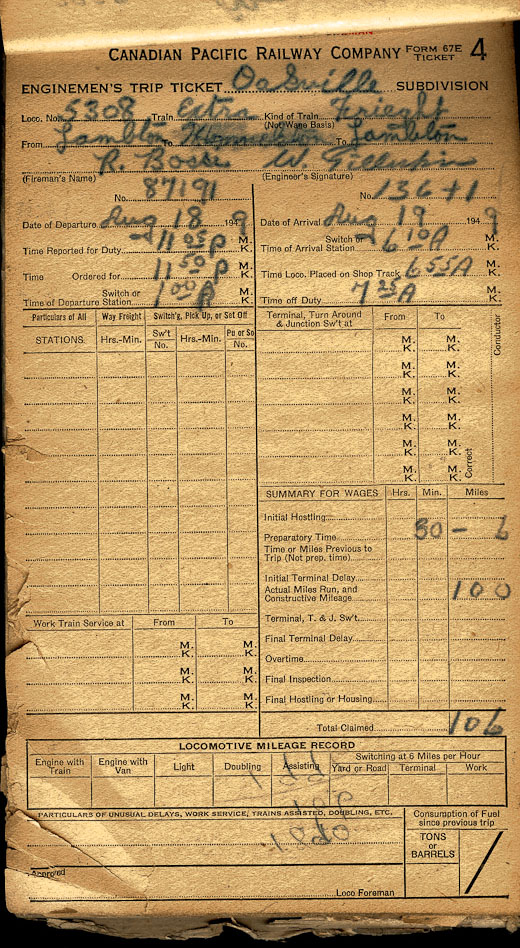 CANADIAN PACIFIC RAILWAY COMPANY FORM 67E TICKET 4
ENGINEMEN'S TRIP TICKET Oakville SUBDIVISION
Loco. No. 5308 Train Extra Kind of Train (Not Wage Basis) Freight
From Lambton To Hamilton To Lambton
R. Boose W. Gillespie
(Fireman's Name) (Engineer's Signature)
No. 87191 No. 13641
Date of Departure Aug 18 1949 Date of Arrival Aug 19 1949
Time Reported for Duty 11 05 P M. K. Switch or Time of Arrival Station 6 10 A M. K.
Time Ordered for 11 50 P M. K. Time Loco. Placed on Shop Track 6 55 A M. K.
Switch or Time of Departure Station 1 00 A M. K. Time off Duty 7 25 A M. K.
Particulars of All Way Freight Switch'g, Pick Up, or Set Off
STATIONS. Hrs.-Min. Sw't No. Hrs.-Min. Pu or So No.
Terminal, Turn Around & Junction Sw't at From To
M. K. M. K.
M. K. M. K.
M. K. M. K.
M. K. M. K.
M. K. M. K.
M. K. M. K.
Correct Conductor
SUMMARY FOR WAGES Hrs. Min. Miles
Initial Hostling
Preparatory Time 30 - 6
Time or Miles Previous to Trip (Not prep. time)
Initial Terminal Delay
Actual Miles Run, and Constructive Mileage 100
Terminal, T. & J. Sw't.
Final Terminal Delay
Overtime
Final Inspection
Final Hostling or Housing
Total Claimed 106
Work Train Service at From To
M. K. M. K.
M. K. M. K.
M. K. M. K.
LOCOMOTIVE MILEAGE RECORD
Engine with Train Engine with Van Light Doubling Assisting Switching at 6 Miles per Hour
Yard or Road Terminal Work
PARTICULARS OF UNUSUAL DELAYS, WORK SERVICE, TRAINS ASSISTED, DOUBLING, ETC.
Consumption of Fuel since previous trip
TONS or BARRELS
Approved
Loco Foreman